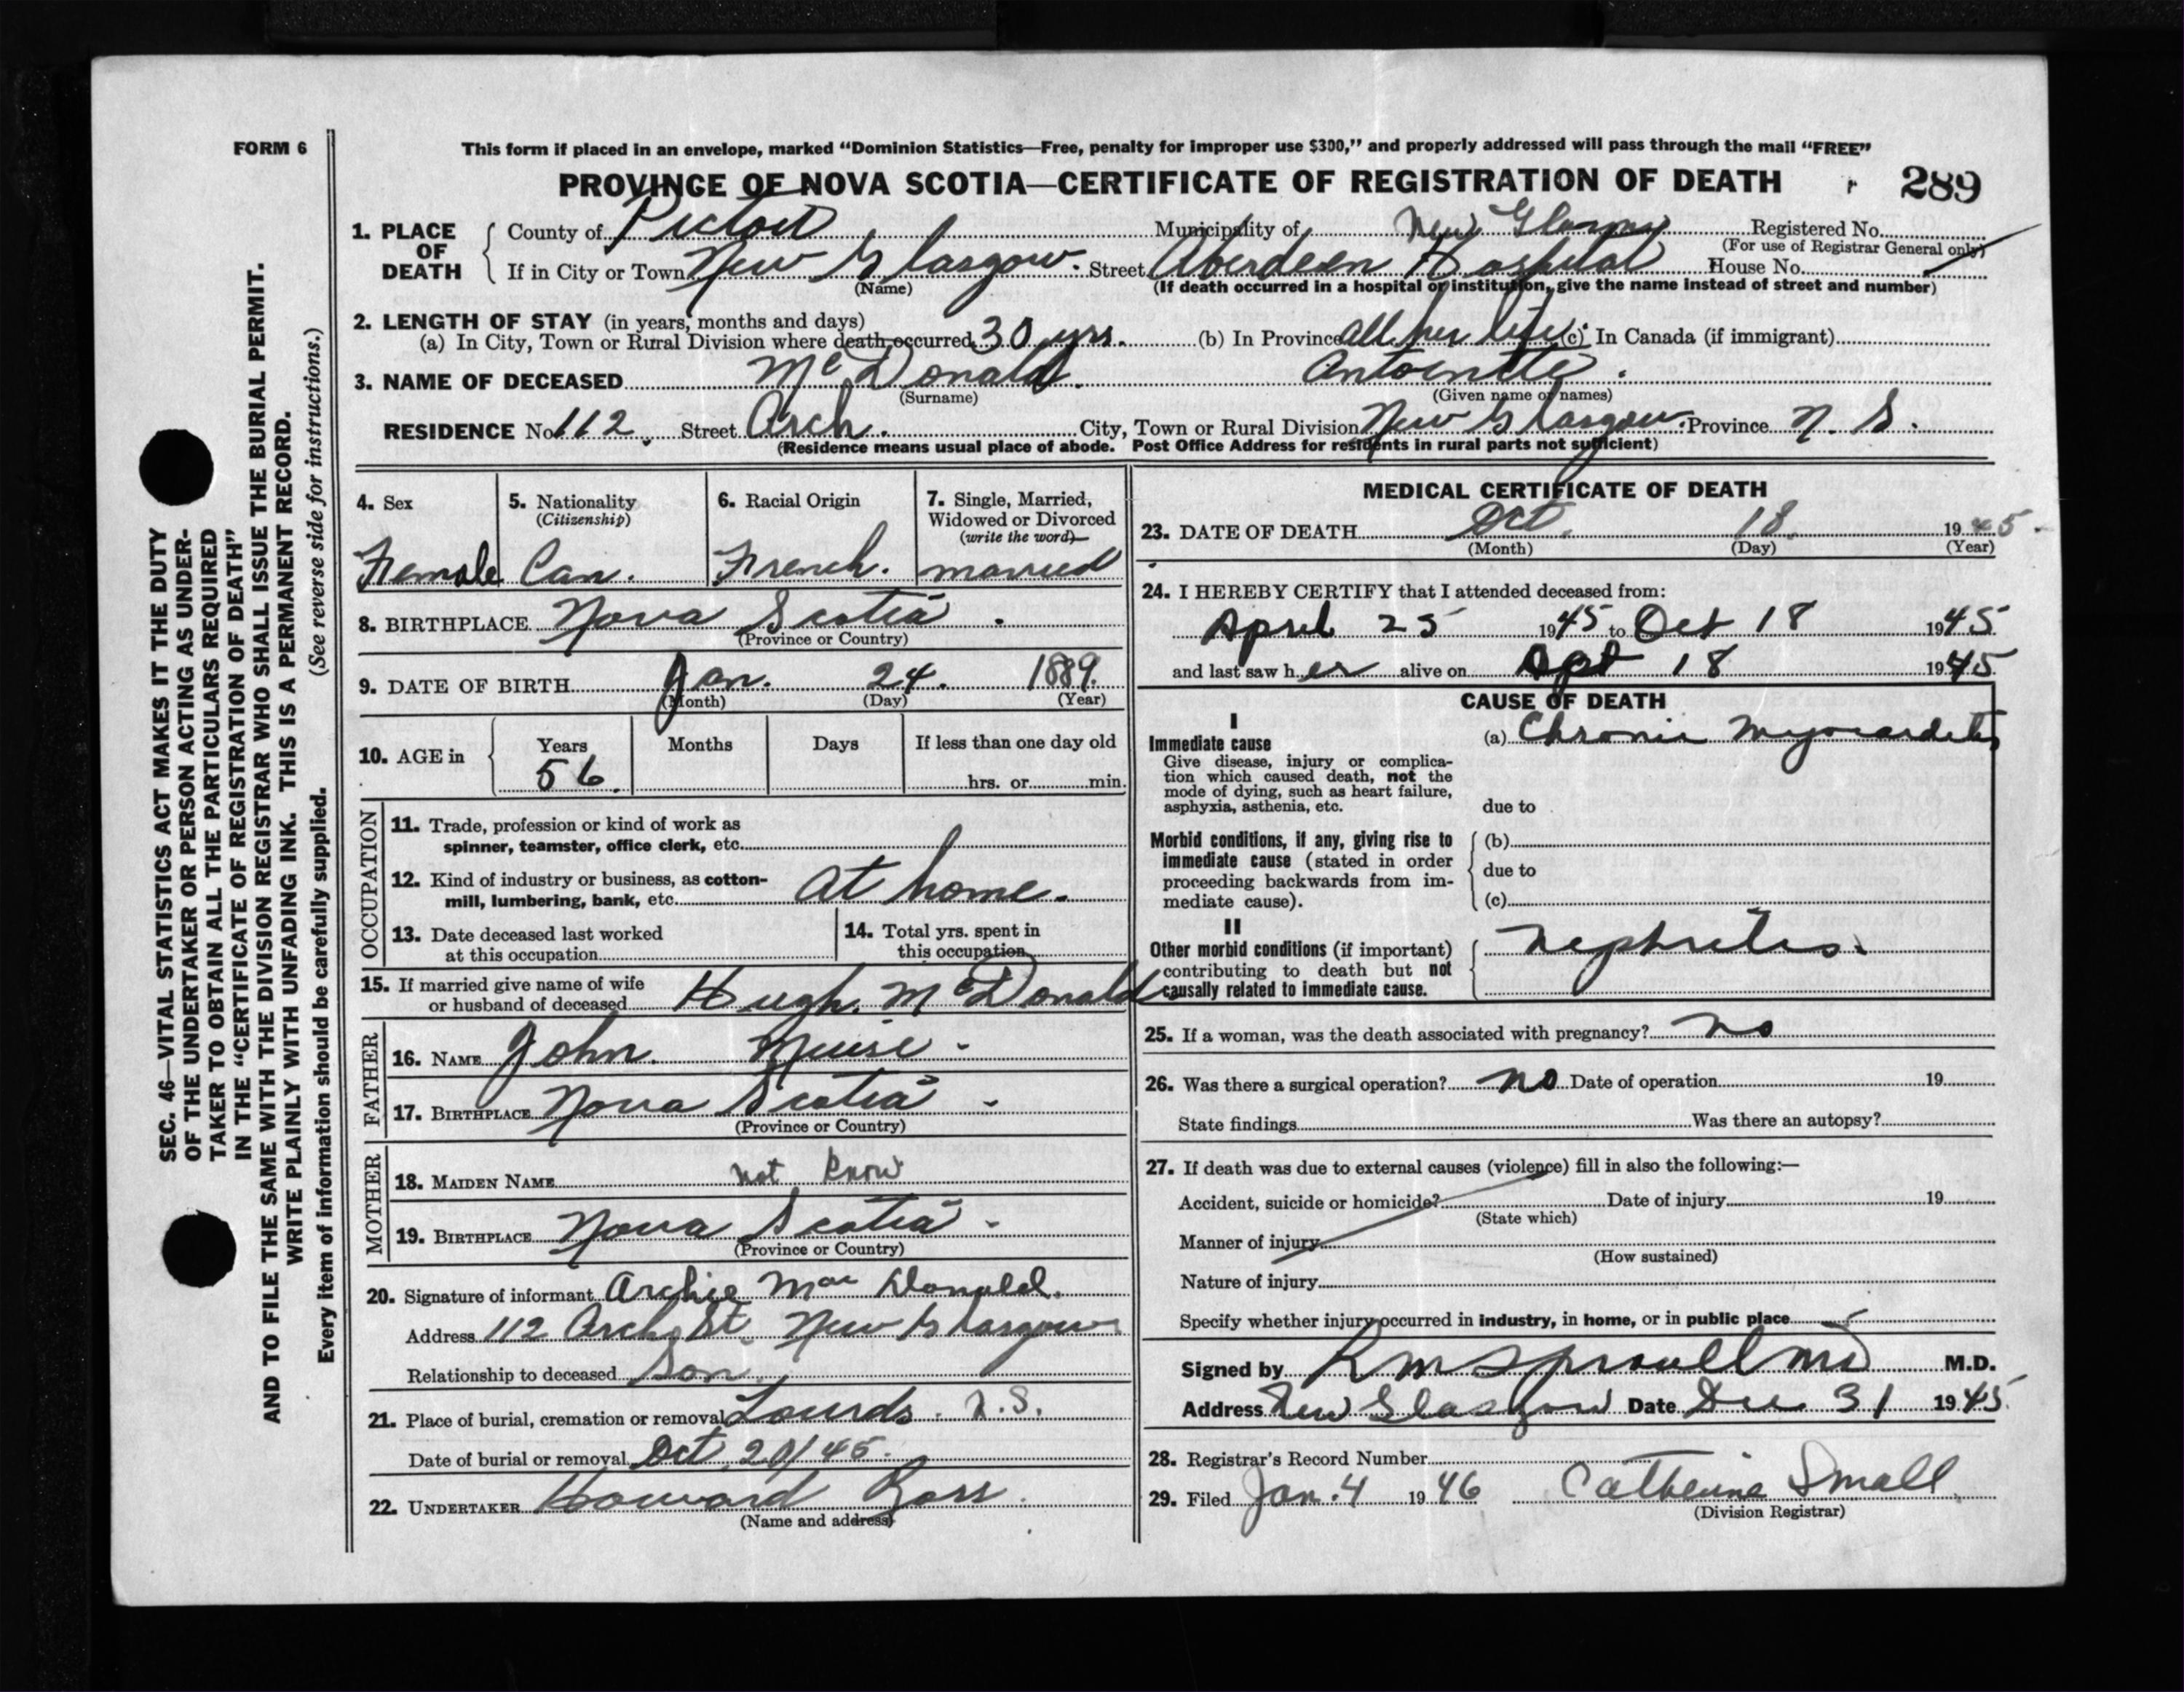 FORM 6
This form if placed in an envelope, marked "Dominion Statistics—Free, penalty for improper use $300," and properly addressed will pass through the mail "FREE"
PROVINCE OF NOVA SCOTIA—CERTIFICATE OF REGISTRATION OF DEATH 289
SEC. 46—VITAL STATISTICS ACT MAKES IT THE DUTY
OF THE UNDERTAKER OR PERSON ACTING AS UNDER-
TAKER TO OBTAIN ALL THE PARTICULARS REQUIRED
IN THE "CERTIFICATE OF REGISTRATION OF DEATH"
AND TO FILE THE SAME WITH THE DIVISION REGISTRAR WHO SHALL ISSUE THE BURIAL PERMIT.
WRITE PLAINLY WITH UNFADING INK. THIS IS A PERMANENT RECORD.
Every item of information should be carefully supplied. (See reverse side for instructions.)
1. PLACE OF DEATH
County of Pictou Municipality of New Glasgow Registered No.
(For use of Registrar General only)
If in City or Town New Glasgow. Street Aberdeen Hospital House No.
(Name) (If death occurred in a hospital or institution, give the name instead of street and number)
2. LENGTH OF STAY (in years, months and days)
(a) In City, Town or Rural Division where death occurred 30 yrs. (b) In Province All her life. (c) In Canada (if immigrant)
3. NAME OF DECEASED McDonald. Antoinette.
(Surname) (Given name or names)
RESIDENCE No. 112. Street Arch. City, Town or Rural Division New Glasgow. Province N. S.
(Residence means usual place of abode. Post Office Address for residents in rural parts not sufficient)
4. Sex
Female
5. Nationality
(Citizenship)
Can.
6. Racial Origin
French.
7. Single, Married,
Widowed or Divorced
(write the word)
married
8. BIRTHPLACE Nova Scotia.
(Province or Country)
9. DATE OF BIRTH Jan. 24. 1889.
(Month) (Day) (Year)
10. AGE in
Years Months Days If less than one day old
56. hrs. or min.
OCCUPATION
11. Trade, profession or kind of work as
spinner, teamster, office clerk, etc.
12. Kind of industry or business, as cotton-
mill, lumbering, bank, etc. At home.
13. Date deceased last worked
at this occupation
14. Total yrs. spent in
this occupation
15. If married give name of wife
or husband of deceased Hugh. McDonald
FATHER
16. NAME John. Muise.
17. BIRTHPLACE Nova Scotia
(Province or Country)
MOTHER
18. MAIDEN NAME not know
19. BIRTHPLACE Nova Scotia
(Province or Country)
20. Signature of informant Archie Mac Donald.
Address 112 Arch St. New Glasgow
Relationship to deceased Son.
21. Place of burial, cremation or removal Lourds. N.S.
Date of burial or removal Oct 20/45.
22. UNDERTAKER Howard Ross.
(Name and address)
MEDICAL CERTIFICATE OF DEATH
23. DATE OF DEATH Oct. 18. 1945
(Month) (Day) (Year)
24. I HEREBY CERTIFY that I attended deceased from:
April 25 1945 to Oct 18 1945
and last saw her alive on 18 1945
CAUSE OF DEATH
I
Immediate cause
Give disease, injury or complica-
tion which caused death, not the
mode of dying, such as heart failure,
asphyxia, asthenia, etc.
(a) Chronic Myocarditis
due to
Morbid conditions, if any, giving rise to
immediate cause (stated in order
proceeding backwards from im-
mediate cause).
(b)
due to
(c)
II
Other morbid conditions (if important)
contributing to death but not
causally related to immediate cause.
Nephritis.
25. If a woman, was the death associated with pregnancy? no
26. Was there a surgical operation? no Date of operation 19
State findings Was there an autopsy?
27. If death was due to external causes (violence) fill in also the following:—
Accident, suicide or homicide? Date of injury 19
(State which)
Manner of injury
(How sustained)
Nature of injury
Specify whether injury occurred in industry, in home, or in public place
Signed by R M Sproull MD M.D.
Address New Glasgow Date Dec 31 1945
28. Registrar's Record Number
29. Filed Jan. 4 1946 Catherine Small
(Division Registrar)